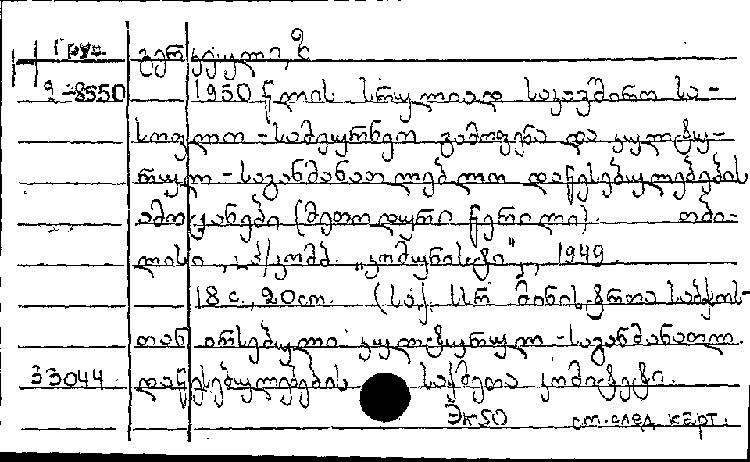 Груз.
2-8550
1950 წლის სრულიად საკავშირო სა-
სოფლო-სამეურნეო გამოფენა და კულტუ-
რულ-საგანმანათლებლო დაწესებულებების
ამოცანები (მეთოდური წერილი). თბი-
ლისი, „კომუნისტი", 1949.
18 с., 20 cm. (საქ. სსრ მინისტრთა საბჭოს-
თან არსებული კულტურულ-საგანმანათლ.
33044 დაწესებულებების საქმეთა კომიტეტი.
ЭК50 см. след. карт.